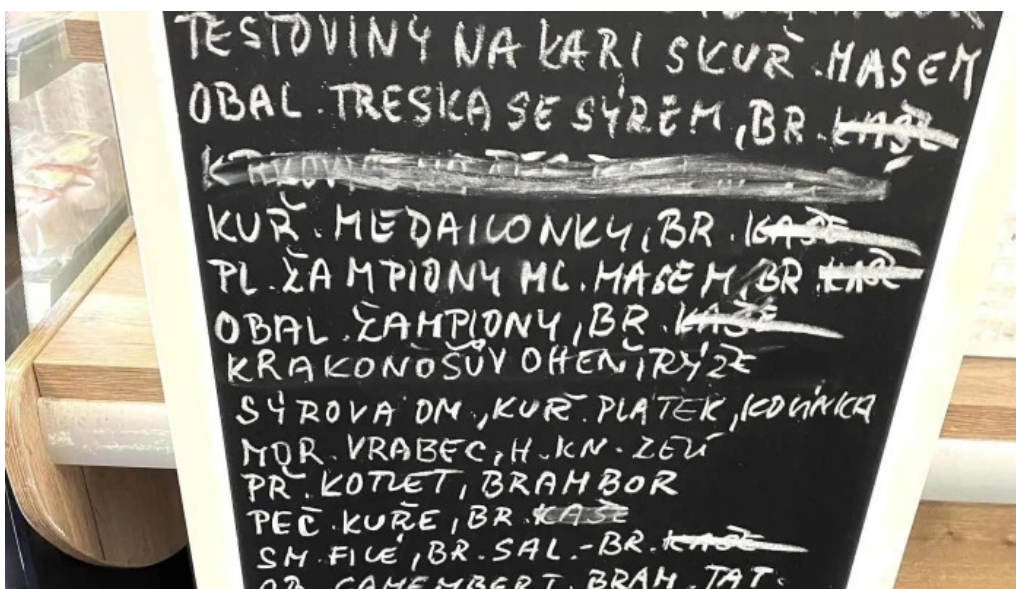 TESTOVINY NA KARI S KUŘ. MASEM
OBAL. TRESKA SE SÝREM, BR. KAŠE
KUŘ. MEDAILONKY, BR. KAŠE
PL. ŽAMPIONY ML. MASEM, BR. KAŠE
OBAL. ŽAMPIONY, BR. KAŠE
KRAKONOŠŮV OHEŇ, RÝŽE
SÝROVÁ OM., KUŘ. PLÁTEK, KOLÍNKA
MOR. VRABEC, H. KN. ZELÍ
PŘ. KOTLET, BRAMBOR
PEČ. KUŘE, BR. KAŠE
SM. FILÉ, BR. SAL. - BR. KAŠE
OB. CAMEMBERT, BRAM. TAT.